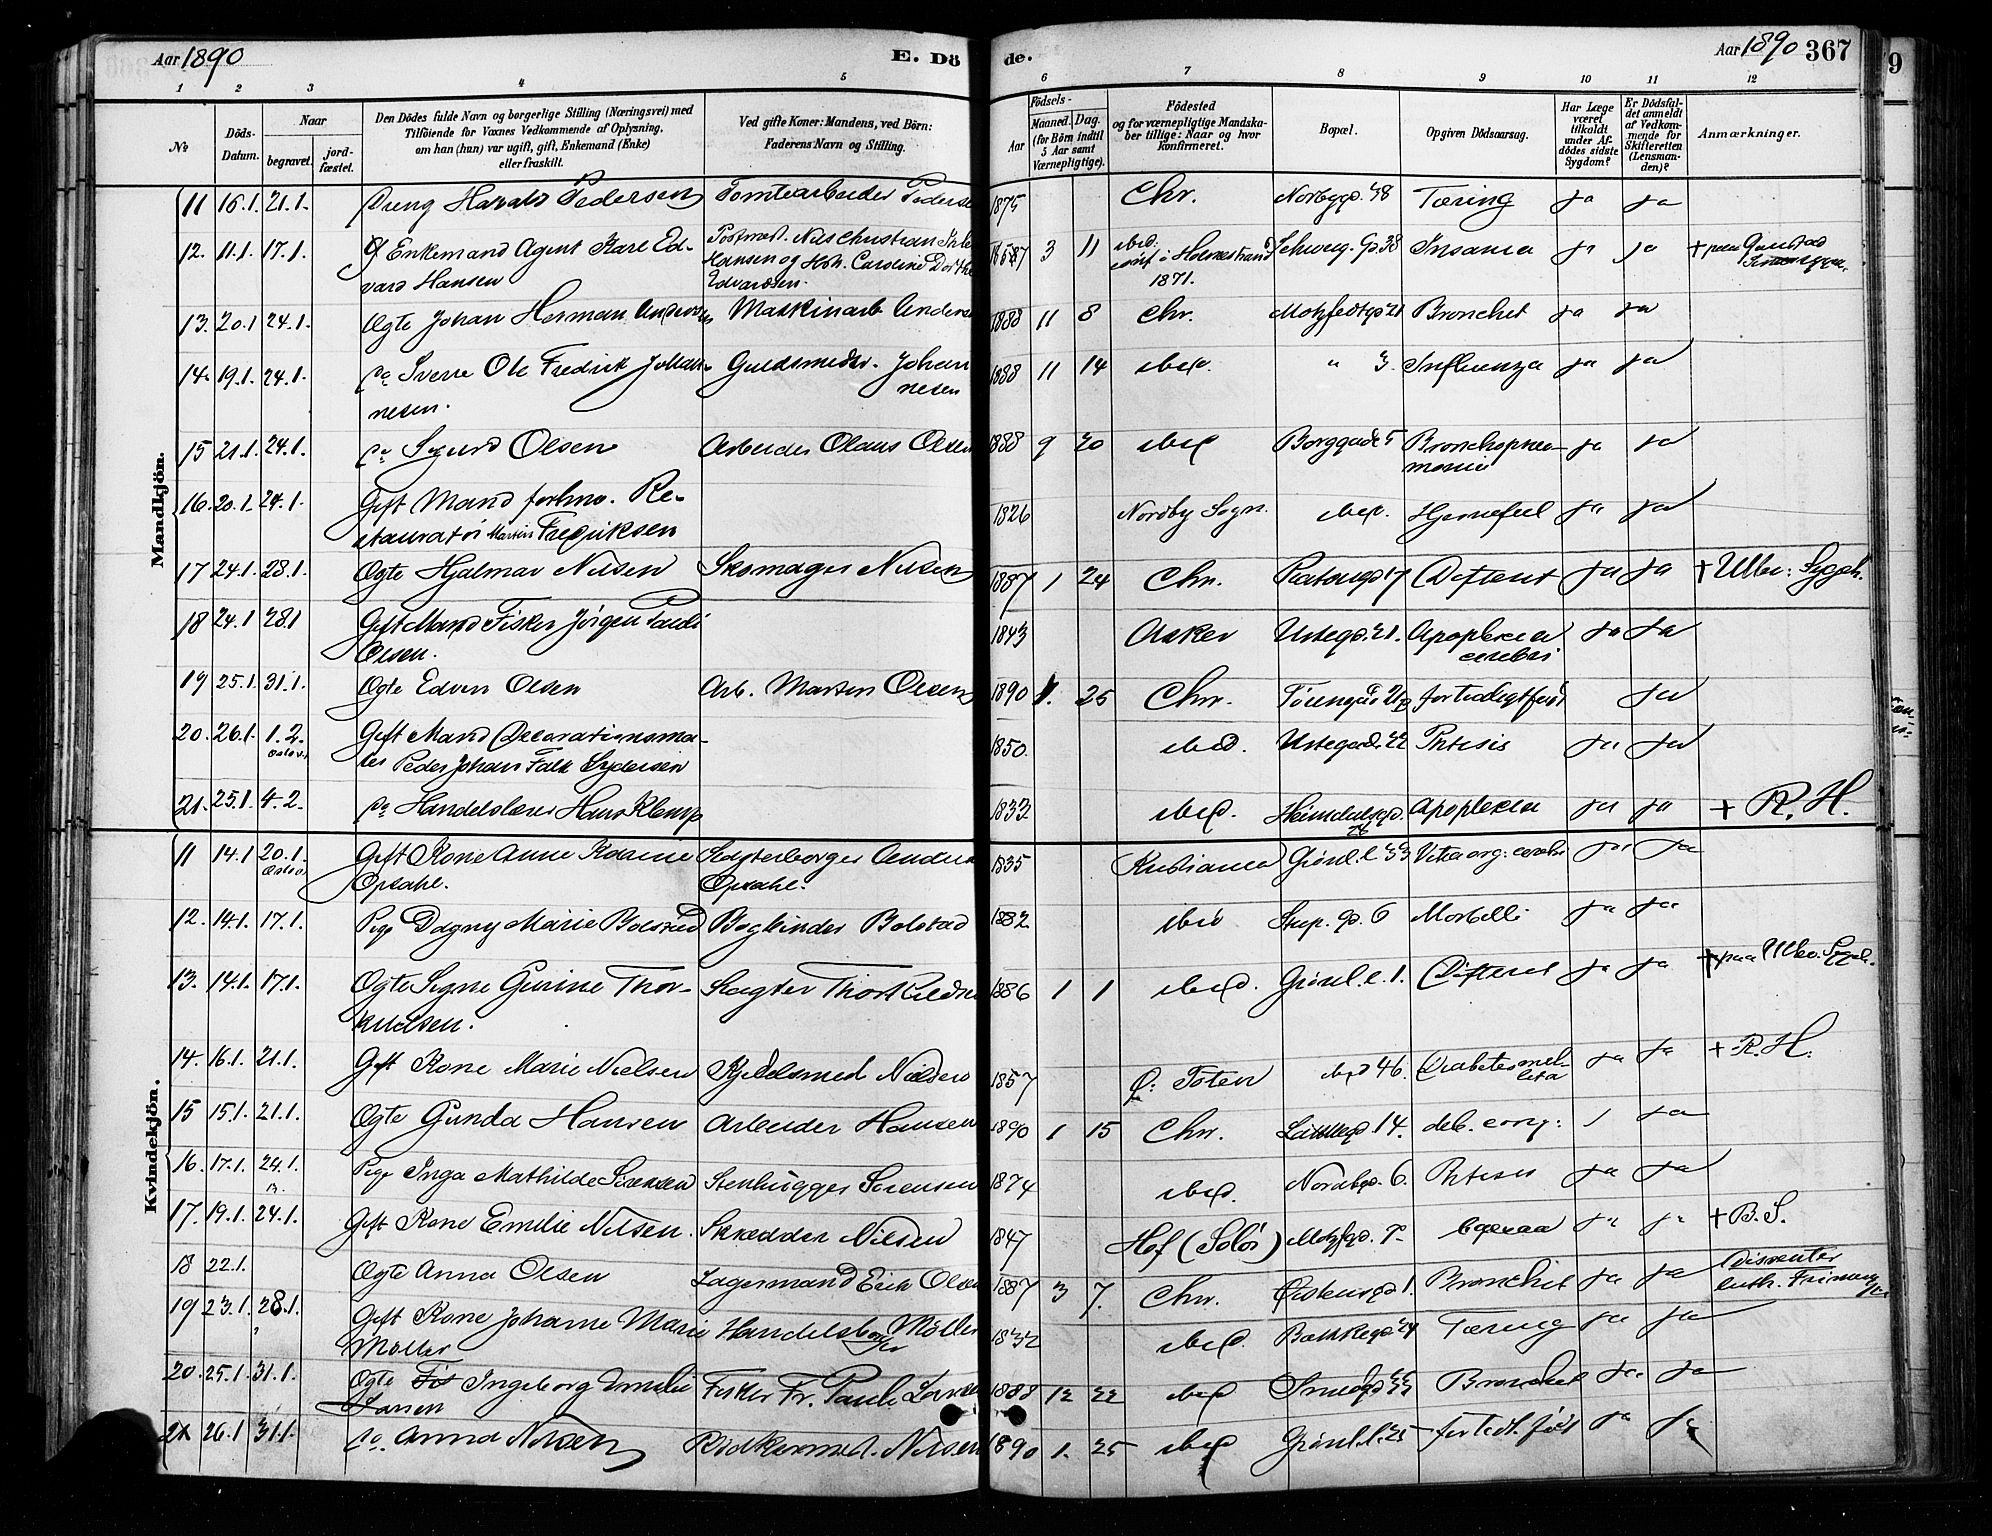 Aar 1890
E. Dö
de.
Aar 1890 367
9
1 2 3 4 5 6 7 8 9 10 11 12
No
Döds-Datum.
Naar
begravet.
jord-fæstet.
Den Dödes fulde Navn og borgerlige Stilling (Næringsvei) med
Tilföiende for Voxnes Vedkommende af Oplysning,
om han (hun) var ugift, gift, Enkemand (Enke)
eller fraskilt.
Ved gifte Koner: Mandens, ved Börn:
Faderens Navn og Stilling.
Födsels-
Aar
Maaned. Dag.
(for Börn indtil
5 Aar samt
Værnepligtige).
Födested
og for værnepligtige Mandska-
ber tillige: Naar og hvor
Konfirmeret.
Bopæl.
Opgiven Dödsaarsag.
Har Læge
været
tilkaldt
under Af-
dödes sidste
Sygdom?
Er Dödsfal-
det anmeldt
af Vedkom-
mende for
Skifteretten
(Lensman-
den)?
Anmærkninger.
Mandkjön.
11 16.1. 21.1. Dreng Harald Pedersen Tomtearbeider Pederse 1875 Chr. Norbygd. 48 Tæring ja ja
12. 11.1. 17.1. Enkemand Agent Karl Ed-
vard Hansen
Nils Christian
Hansen og Caroline
Edvardsen.
3 11 ibid:
i Holmestrand
1871.
Schweig. Gd. 38 Insania ja ja + paa Gaustad
13. 20.1 24.1. Ogte Johan Herman Maskinarb Anders 1888 11 8 Chr. Motzfedtgd 21 Bronchit ja ja
14. 19.1. 24.1. do Sverre Ole Fredrik Johan-
nesen.
Guldsmedsv. Johan
nesen
1888 11 14 ibid. " 3. Influenza ja ja
15 21.1. 24.1. do Sigurd Olsen Arbeider Olaus Olsen 1888 9 20 ibid Borggade 5 Bronchopneu-
monie
ja ja
16. 20.1. 24.1. Gift Mand forhnv. Re-
stauratör Martin Fredriksen
1826 Nordby Sogn. ibid. Hjernefeil ja ja
17 24.1. 28.1. Ogte Hjalmar Nilsen Skomager Nilsen 1887 1 24 Chr. Difterit ja ja + Ullev: Sygeh.
18 24.1 28.1 Gift Mand Fisker Jörgen
Olsen.
1843 Asker Urtegd. 21. Apoplexia
cerebri
ja ja
19 25.1. 31.1. Ogte Edvin Olsen Arb. Martin Olsen 1890 1. 25 Chr. for tidligt föd ja
20. 26.1. 1.2.
Oslo
Gift Mand Decorationsma-
ler Peder Johan Falk Sydersen
1850. ibid. Urtegad. 22 Phtisis ja ja
21. 25.1. 4.2. do Handelslærer Hans Klemp 1833 ibid. Heimdalsgd. Apoplexia ja ja + R.H.
Kvindekjön.
11 14.1 20.1. Gift Kone Anne
Opsahl.
Opsahl.
1835 Kristiania Grönl. l 33 ja ja
12. 14.1. 17.1. Pige Dagny Marie Bolstad Bogbinder Bolstad 1882 ibid Stup. gd. 6 Morbilli ja ja
13. 14.1. 17.1. Ogte Signe Gurine Thor-
kildsen.
Slagter Thorkildse 1886 1 1 ibid. Grönl. l. 1. Difterit ja ja + paa Ullev. Sygeh.
14. 16.1. 21.1. Gift Kone Marie Nielsen Kjedelsmed Nielsen 1857 Ö: Toten ibid 46. Diabetes mel-
lita
ja ja + R.H.
15 15.1. 21.1. Ogte Gunda Hansen Arbeider Hansen 1890 1 15 Chr. 14. deb. cong: / ja
16. 17.1. 24.1. Pige Inga Mathilde Sörensen Stenhugger Sörensen 1874 ibid. Nordbgd. 6. Phtisis ja ja
17. 19.1. 24.1. Gift Kone Emilie Nilsen. Skrædder Nielsen 1847 Hof (Solör) ja ja + B.S.
18 22.1. Ogte Anna Olsen Lagermand Erik Olsen 1887 3 7. Chr. 1. Bronchit ja ja Dissenter
luth. Frimenig.
19 23.1. 28.1. Gift Kone Johanne Marie
Möller
Möller 1832 ibid. Tæring ja ja
20. 25.1. 31.1. Ogte Ingeborg Emilie
Larsen
Fisker Fr. Pauli Larsen 1888 12 22 ibid Bronchit ja ja
21 26.1 31.1. do Anna Nilsen Nilsen 1890 1. 25 ibid Grönl. l. 25 for tidl. föd ja ja